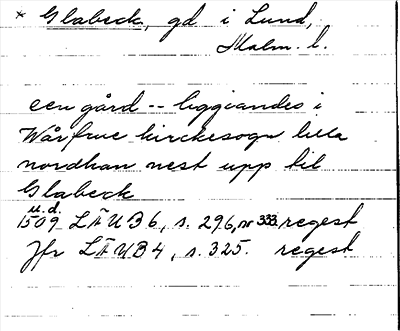 * Glabeck, gd i Lund,
Malm. l.
een gård -- liggiandes i
Wår frue kirckesogn lilla
nordhan nest upp til
Glabeck
u.d.
1509 LÄUB 6, s. 296, nr 333. regest
Jfr LÄUB 4, s. 325. regest